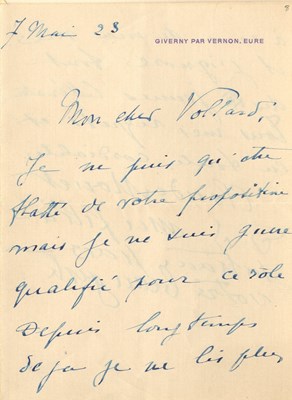 7 Mai 23
GIVERNY PAR VERNON, EURE
Mon cher Vollard,
Je ne puis qu'être
flatté de votre proposition
mais je ne suis guere
qualifié pour ce rôle
Depuis longtemps
deja je ne lis plus